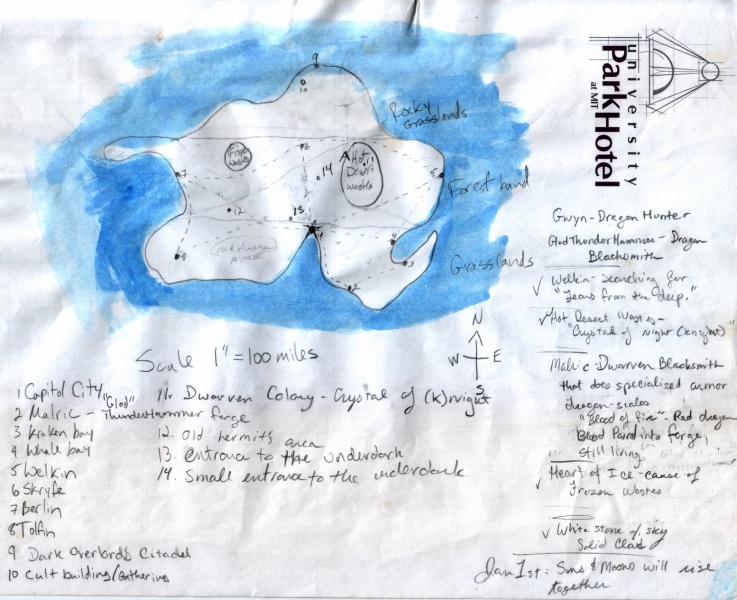 university
ParkHotel
at MIT
9
10
Rocky
Grasslands
Frozen
Wastes
Hot
Desert
Wastes
14
Forest land
12
13
Grasslands
4
3
2
N
W E
S
Scale 1"=100 miles
1 Capitol City
2 Malric - "Glod" ThunderHammer forge
3 Kraken bay
4 Whale bay
5 Welkin
6 Skryfe
7 Berlin
8 Tolfin
9 Dark Overlords Citadel
10 Cult building/Gathering
11. Dwarven Colony - Crystal of (k)night
12. old hermits area
13. entrance to the underdark
14. Small entrance to the underdark
Gwyn - Dragon Hunter
Glod ThunderHammer - Dragon
Blacksmith
✓ Welkin - Searching for
"Tears from the deep."
✓ Hot Desert Wastes -
"Crystal of night (knight)"
Malric - Dwarven Blacksmith
that does specialized armor
dragon-scales
"Blood of fire" - Red dragon
Blood Pour'd into forge,
still living.
✓ Heart of Ice - cause of
Frozen Wastes
✓ White stone of sky
Solid Cloud
Jan 1st: Suns & Moons will rise
together